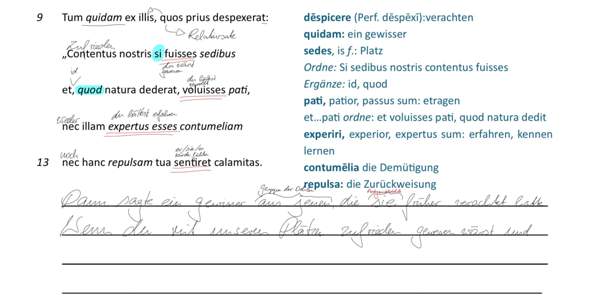 9 Tum quidam ex illis, quos prius despexerat:
Relativsatz
zufrieden
„Contentus nostris si fuisses sedibus
du wärst
du hättest
et, quod natura dederat, voluisses pati,
weder du hättest erfahren
nec illam expertus esses contumeliam
noch
13 nec hanc repulsam tua sentiret calamitas.
dēspicere (Perf. dēspēxī):verachten
quidam: ein gewisser
sedes, is f.: Platz
Ordne: Si sedibus nostris contentus fuisses
Ergänze: id, quod
pati, patior, passus sum: etragen
et…pati ordne: et voluisses pati, quod natura dedit
experiri, experior, expertus sum: erfahren, kennen
lernen
contumēlia die Demütigung
repulsa: die Zurückweisung
Dann sagte ein gewisser aus jenen, die sie früher verachtet hatte
Wenn du mit unseren Plätzen zufrieden gewesen wärst und